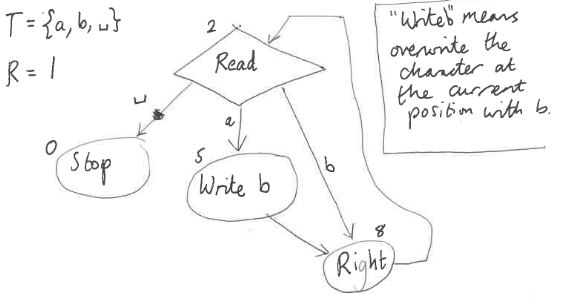 T = {a, b, ␣}
R = 1
2
Read
␣
a
b
0
Stop
5
Write b
8
Right
"Write b" means
overwrite the
character at
the current
position with b.